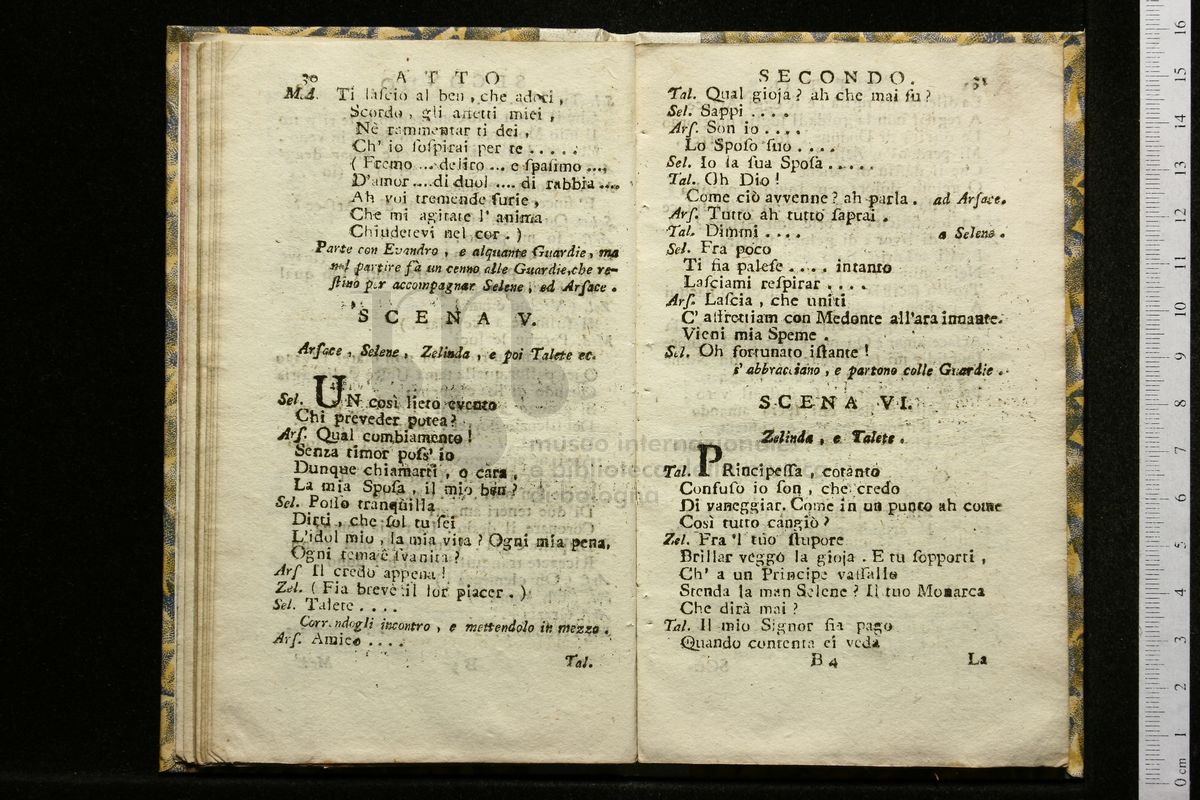 30 ATTO
M.A. Ti lascio al ben, che adori,
Scordo, gli affetti miei,
Nè rammentar ti dei,
Ch' io sospirai per te . . . . .
( Fremo .... deliro ... e spasimo ....
D'amor .... di duol .... di rabbia ....
Ah voi tremende furie,
Che mi agitate l' anima
Chiudetevi nel cor. )
Parte con Evandro, e alquante Guardie, ma
nel partire fà un cenno alle Guardie, che re-
stino per accompagnar Selene, ed Arsace.
SCENA V.
Arsace, Selene, Zelinda, e poi Talete ec.
Sel. UN così lieto evento
Chi preveder potea?
Ars. Qual combiamento!
Senza timor poss' io
Dunque chiamarti, o cara,
La mia Sposa, il mio ben?
Sel. Posso tranquilla
Dirti, che sol tu sei
L'idol mio, la mia vita? Ogni mia pena,
Ogni tema è svanita?
Ars Il credo appena!
Zel. ( Fia breve il lor piacer. )
Sel. Talete . . . .
Correndogli incontro, e mettendolo in mezzo.
Ars. Amico . . . .
Tal.
SECONDO. 31
Tal. Qual gioja? ah che mai fu?
Sel. Sappi . . . .
Ars. Son io . . . .
Lo Sposo suo . . . .
Sel. Io la sua Sposa . . . . .
Tal. Oh Dio!
Come ciò avvenne? ah parla. ad Arsace.
Ars. Tutto ah tutto saprai.
Tal. Dimmi . . . . a Selene.
Sel. Fra poco
Ti fia palese . . . . intanto
Lasciami respirar . . . .
Ars. Lascia, che uniti
C' affrettiam con Medonte all'ara innante.
Vieni mia Speme.
Sel. Oh fortunato istante!
s' abbracciano, e partono colle Guardie.
SCENA VI.
Zelinda, e Talete.
Tal. PRincipessa, cotanto
Confuso io son, che credo
Di vaneggiar. Come in un punto ah come
Così tutto cangiò?
Zel. Fra 'l tuo stupore
Brillar veggo la gioja. E tu sopporti,
Ch' a un Principe vassallo
Stenda la man Selene? Il tuo Monarca
Che dirà mai?
Tal. Il mio Signor fia pago
Quando contenta ei veda
B 4 La
museo internazionale
e biblioteca della musica
di bologna